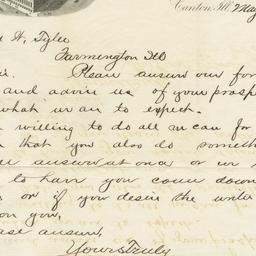 Canton, Ill. May
H. Tyler
Farmington Ills
Please answer our for
and advise us of your prosp
what we are to expect.
willing to do all we can for
that you also do someth
answer at once or we
to have you come down
or if you desire the writer
on you.
ase answer,
Yours Truly